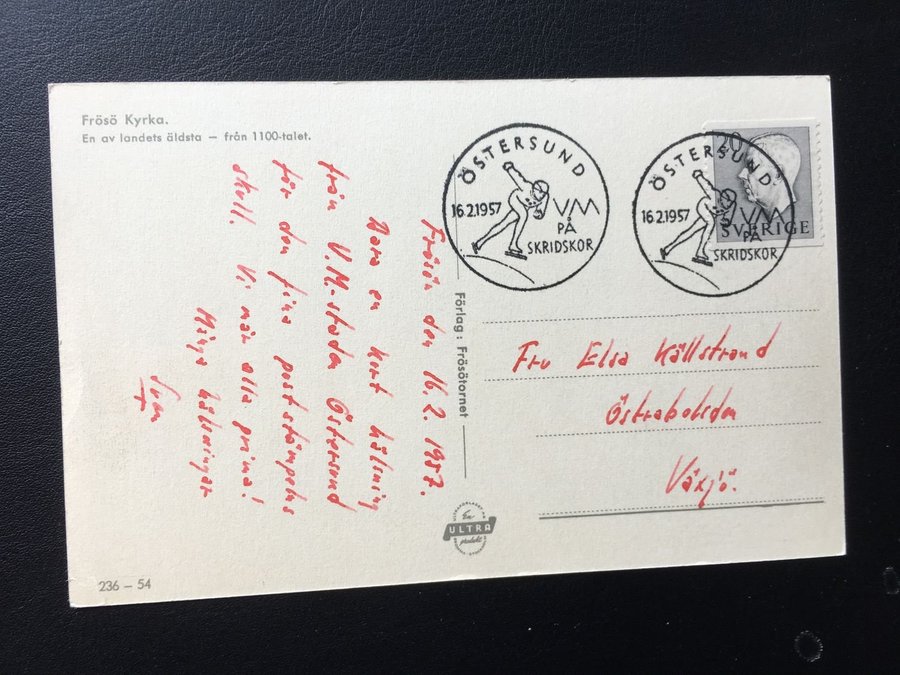 Frösö Kyrka.
En av landets äldsta — från 1100-talet.
Frösön den 16.2. 1957.
Bara en kort hälsning
från V.M.-staden Östersund
för den fina poststämpelns
skull. Vi mår alla prima!
Många hälsningar
Sven
Förlag: Frösötornet
ÖSTERSUND
16.2.1957
VM
PÅ
SKRIDSKOR
ÖSTERSUND
16.2.1957
VM
PÅ
SKRIDSKOR
20
SVERIGE
Fru Elsa Källstrand
Östrabo
Växjö.
En
ULTRA
produkt
236 – 54